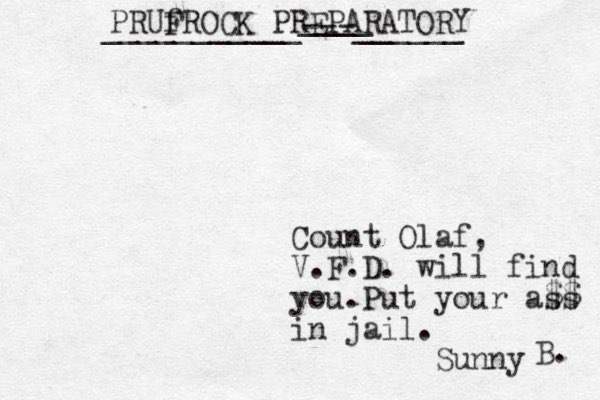 PRUFROCK PREPARATORY
Count Olaf,
V.F.D. will find
you.Put your a$$
in jail.
Sunny B.